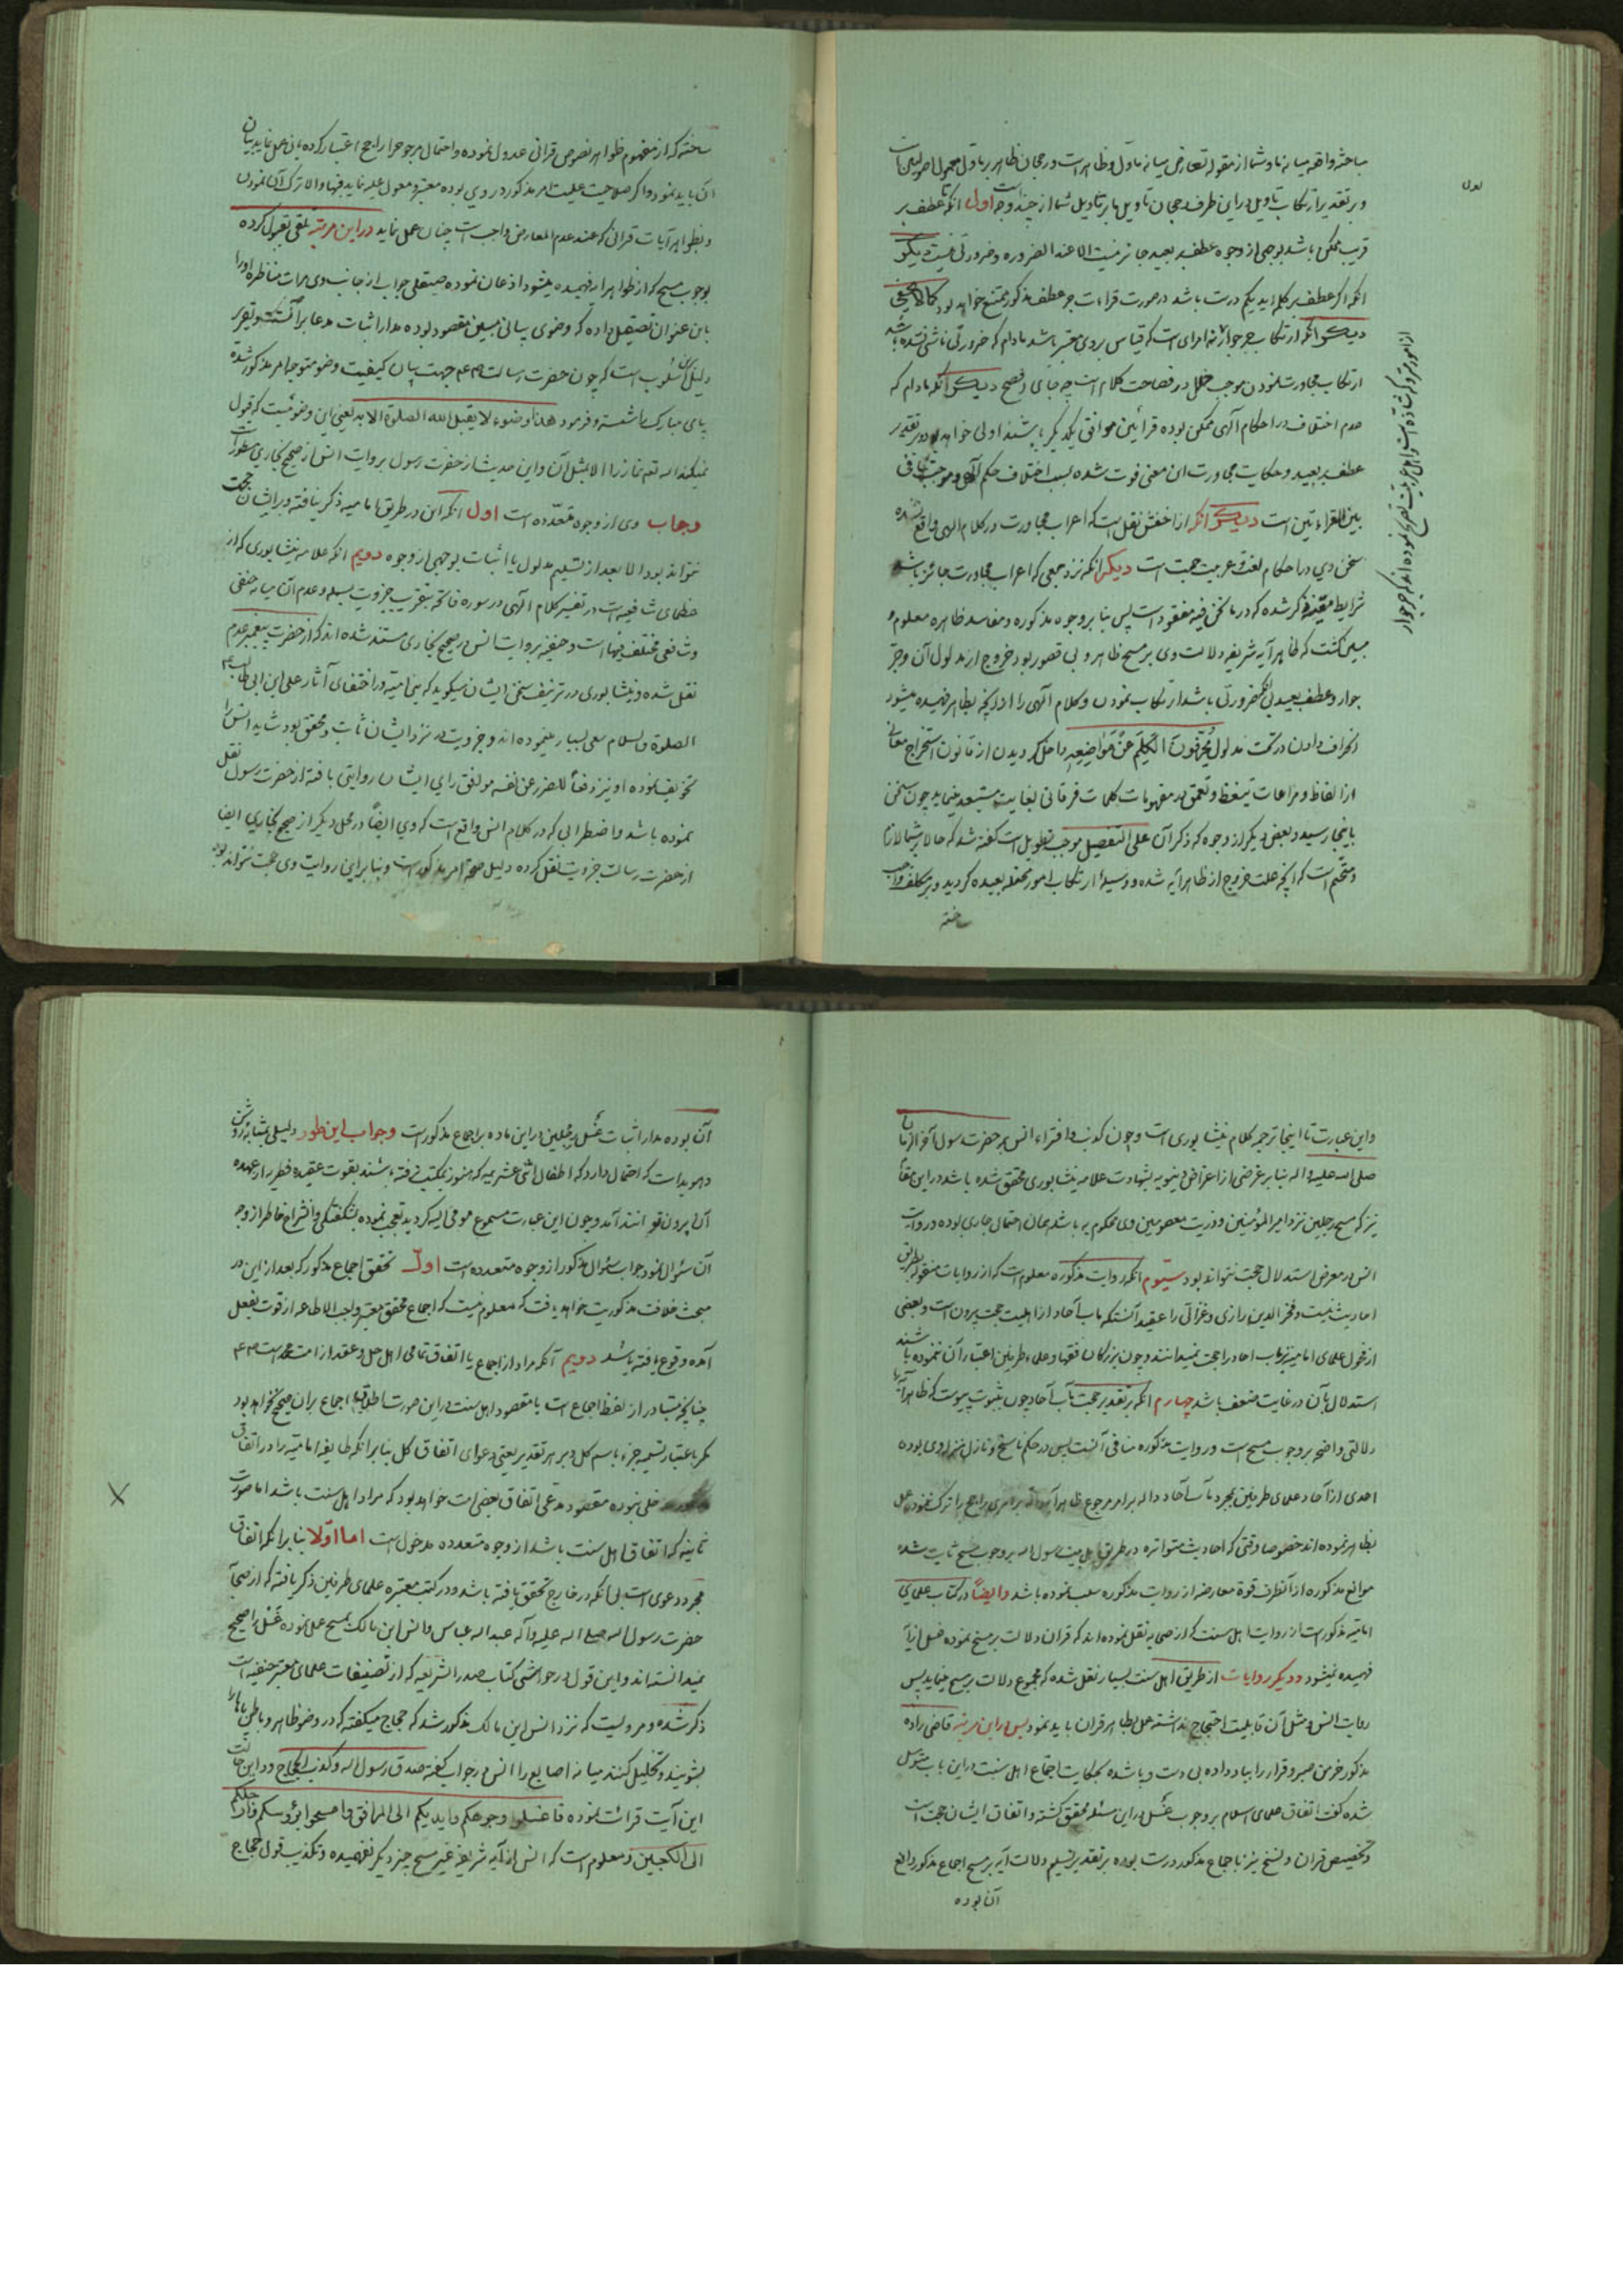 مباحثه واقعه میانه ما و شما از مقوله تعارض میانه مأول و ظاهر است و رجحان ظاهر بر مأول معمول اصولیین است
و بر تقدیر ارتکاب تاویل در این طرف رجحان تاویل ما بر تاویل شما از چند وجه است اول آنکه تا عطف بر
قریب ممکن باشد بوجهی از وجوه عطف بر بعید جائز نیست الا عند الضروره و ضرورتی نیست دیگر
آنکه اگر عطف بر کلمه ایدیکم درست باشد در صورت قراءت جر عطف مذکور ممتنع خواهد بود کما لا یخفی
دیگر آنکه ارتکاب جر جوار نه امرای است که قیاس بر وی معتبر باشد مادام که ضرورتی ناشی نشده باشد
ارتکاب مجاورت نمودن موجب خلل در فصاحت کلام است چه جای افصح دیگر آنکه مادام که
عدم اختلاف در احکام آلهی ممکن بوده قرائتین موافق یکدیگر باشند اولی خواهد بود و بر تقدیر
عطف بر بعید و حکایت مجاورت این معنی فوت شده بسبب اختلاف حکم آلهی و موجب تنافی
بین القراءتین است دیگر آنکه از اخفش نقل است که اعراب مجاورت در کلام الهی واقع نشده
سخن وی در احکام لغت و عربیت حجت است دیگر آنکه نزد جمعی که اعراب مجاورت جائز باشد
شرایط مقرره ذکر شده که در ما نحن فیه مفقود است پس بنا بر وجوه مذکوره و مفاسد ظاهره معلوم و
مبین گشت که ظاهر آیه شریفه دلالت وی بر مسح ظاهر و بی قصور بود خروج از مدلول آن و جر
جوار و عطف بعید بی آنکه ضرورتی باشد ارتکاب نمودن و کلام آلهی را از آنچه بظاهر فهمیده میشود
انحراف دادن در تحت مدلول یُحَرِّفُونَ الْکَلِمَ عَنْ مَوَاضِعِهِ داخل گردیدن از قانون استخراج معانی
از الفاظ و مراعات تیقظ و تعمق در مفهومات کلمات فرقانی بغایت مستبعد مینماید چون سخن
باینجا رسید و بعضی دیگر از وجوه که ذکر آن علی التفصیل موجب تطویل است گفته شد که حالا بر شما لازم
و متحتم است که آنچه علت خروج از ظاهر آیه شده و وسیلهٔ ارتکاب امور مختله بعیده گردید و بر مکلف واجب
ساخته
از امور متروکه شاذه است و اهل عربیت تصریح نموده اند که جر جوار
ساخته که از مفهوم ظواهر نصوص قرآنی عدول نموده و احتمال مرجوح را راجح اعتبار کرده بآن عمل نماید بیان
آن باید نمود و اگر صلاحیت علیت امر مذکور در وی بوده معتبر و معول علیه نماید فبها و الا ترک آن نمودن
و بظواهر آیات قرآنی که عند عدم المعارض واجب است چنان عمل نماید در این مرتبه تلقی بقبول کرده
بوجوب مسح که از ظواهر آیه فهمیده میشود اذعان نموده صیقلی جواب از جانب وی مرات مناظره او را
باین عنوان تصیقل داده که وضوی بیانی مبین مقصود بوده مدار اثبات مدعا بر آنست و تقریر
دلیل بر این اسلوب است که چون حضرت رسالت جهت بیان کیفیت وضو متوجه امر مذکور شده
پای مبارک را شسته و فرمود هذا وضوء لا یقبل الله الصلوة الا به یعنی این وضوئیست که قبول
نمیکند الله تعم نماز را الا بمثل آن و این حدیث از حضرت رسول بروایت انس از صحیح بخاری
و جاب وی از وجوه متعدده است اول آنکه این در طریق امامیه ذکر نیافته و بر ایشان حجت
نتواند بود الا بعد از تسلیم مدلول یا اثبات بوجهی از وجوه دویم آنکه علامه نیشابوری که از
عظمای شافعیه است در تفسیر کلام آلهی در سوره فاتحه بتقریب جزویت بسمله و عدم آن میانه حنفی
و شافعی مختلف فیها است و حنفیه بروایت انس در صحیح بخاری مستند شده اند که از حضرت پیغمبر عدم
نقل شده و نیشابوری در تزییف سخن ایشان میگوید که بنی امیه در اختفای آثار علی ابن ابی طالب علیه
الصلوة و السلام سعی بسیار مینموده اند و جزویت در نزد ایشان ثابت و محقق بود شاید انس را
تخویف نموده او نیز دفعاً للضرر عن نفسه موافق رای ایشان روایتی بافته از حضرت رسول نقل
نموده باشد و اضطرابی که در کلام انس واقع است که وی ایضاً در محل دیگر از صحیح بخاری ایضا
از حضرت رسالت جزویت نقل کرده دلیل صحت امر مذکور است و بنابر این روایت وی حجت نتواند بود
واین عبارت تا اینجا ترجمه کلام نیشابوری است و چون کذب و افتراء انس بر حضرت رسول آخر الزمان
صلی الله علیه و اله بنابر غرضی از اعراض دنیویه بشهادت علامه نیشابوری محقق شده باشد در این مقام
نیز که مسح رجلین نزد امیر المؤمنین و ذریت معصومین وی محکوم به باشد همان احتمال جاری بوده و روایت
انس در معرض استدلال حجت نتواند بود سیّوم آنکه روایت مذکوره معلوم است که از روایات منقوله بطریق
احادیث نیست و فخر الدین رازی و غزالی را عقیده آنستکه باب آحاد از اهلیت حجت بیرون است و بعضی
از فحول علمای امامیه نیز باب احاد را حجت نمیدانند و چون بزرگان فقها و علماء طرفین اعتبار آن ننموده باشند
استدلال بآن در غایت ضعف باشد چهارم آنکه بر تقدیر حجت باب آحاد چون بثبوت پیوست که ظاهر آیه را
دلالتی واضح بر وجوب مسح است و روایت مذکوره منافی آنست پس در حکم ناسخ و نازل منزله وی بوده
احدی از آحاد علمای طرفین بمجرد باب آحاد داله بر امر مرجوح ظاهر آیه داله بر امری راجح را ترک ننموده عمل
بظاهر نموده اند خصوصا وقتی که احادیث متواتره در طریق اهل بیت رسول الله بر وجوب مسح ثابت شده
موانع مذکوره از آنطرف قوة معارضه از روایت مذکوره سلب نموده باشد و ایضاً در کتاب علمای
امامیه مذکور است از روایت اهل سنت که از صحابه نقل نموده اند که قرآن دلالت بر مسح نموده غسل از آیه
فهمیده نمیشود و دیگر روایات از طریق اهل سنت بسیار نقل شده که مجموع دلالت بر مسح مینماید پس
روایت انس و مثل آن قابلیت احتجاج نداشته عمل بظاهر قرآن باید نمود پس در این مرتبه قاضی زاده
مذکور خرمن صبر و قرار را بباد داده بی دست و پا شده بحکایت اجماع اهل سنت در این باب متوسل
شده گفت اتفاق علمای اسلام بر وجوب غسل در این مسئله محقق گشته و اتفاق ایشان حجت است
و تخصیص قرآن و نسخ نیز باجماع مذکور درست بوده بر تقدیر تسلیم دلالت آیه بر مسح اجماع مذکور دافع
آن بوده
آن بوده مدار اثبات غسل رجلین در این ماده بر اجماع مذکور است و جواب این طور دلیلی بمثابه روشن
و هویدا است که احتمال دارد که اطفال اثنی عشریه که هنوز بمکتب نرفته باشند بقوت عقیده فطریه از عهده
آن بیرون توانند آمد و چون این عبارت مسموع مومی الیه گردید تعجب نموده بشگفتگی و انشراح خاطر از وجه
آن سئوال نمود جواب سئوال مذکور از وجوه متعدده است اول تحقق اجماع مذکور که بعد از این در
مبحث خلافت مذکوریت خواهد یافت که معلوم نیست که اجماع محقق معتبر واجب الاطاعه از قوت بفعل
آمده وقوع یافته باشد دویم آنکه مراد از اجماع یا اتفاق تمامی اهل حل و عقد از امت محمد است
چنانچه متبادر از لفظ اجماع است یا مقصود اهل سنت در این صورت اطلاق اجماع بر آن صحیح نخواهد بود
مگر باعتبار تسمیه جزء باسم کل و بر هر تقدیر یعنی دعوای اتفاق کل بنابر آنکه طایفه امامیه را در اتفاق
دخلی نبوده مقصود مدعی اتفاق بعضی امت خواهد بود که مراد اهل سنت باشد اما صورت
ثانیه که اتفاق اهل سنت باشد از وجوه متعدده مدخول است اما اوّلا بنابر آنکه اتفاق
مجرد دعوی است بی آنکه در خارج تحقق یافته باشد و در کتب معتبره علمای طرفین ذکر یافته که از صحابه
حضرت رسول الله صلی الله علیه و آله عبد الله عباس و انس ابن مالک بمسح عمل نموده غسل را صحیح
نمیدانسته اند و این قول در حواشی کتاب صدر الشریعه که از تصنیفات علمای معتبر حنفیه است
ذکر شده و مرویست که نزد انس ابن مالک مذکور شد که حجاج میگفته که در وضو ظاهر و باطن پاها را
بشویند و تخلیل کنند میانه اصابع را انس در جواب گفته صدق رسول الله و کذب الحجاج و در این حالت
این آیت قرائت نموده فاغسلوا وجوهکم و ایدیکم الی المرافق و امسحوا برؤسکم و ارجلکم
الی الکعبین و معلوم است که انس از آیه شریفه غیر مسح چیز دیگر نفهمیده و تکذیب قول حجاج